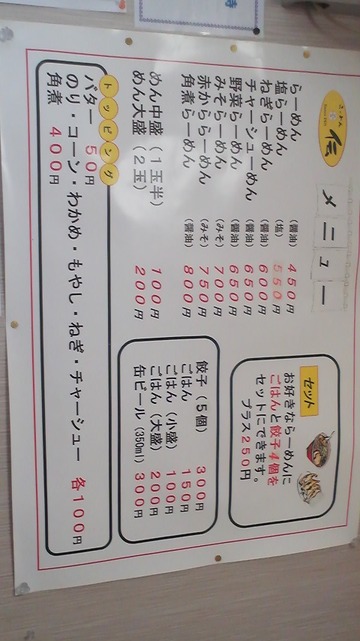 伝
メニュー
らーめん (醤油) 450円
塩らーめん (塩) 550円
ねぎらーめん (醤油) 600円
チャーシューめん (醤油) 650円
野菜らーめん (醤油) 650円
みそらーめん (みそ) 700円
赤かららーめん (みそ) 750円
角煮らーめん (醤油) 800円
めん中盛 (1玉半) 100円
めん大盛 (2玉) 200円
セット
お好きならーめんに
ごはんと餃子4個を
セットにできます。
プラス250円
餃子 (5個) 300円
ごはん 150円
ごはん (小盛) 100円
ごはん (大盛) 200円
缶ビール (350ml) 300円
トッピング
バター 50円
のり・コーン・わかめ・もやし・ねぎ・チャーシュー 各100円
角煮 400円